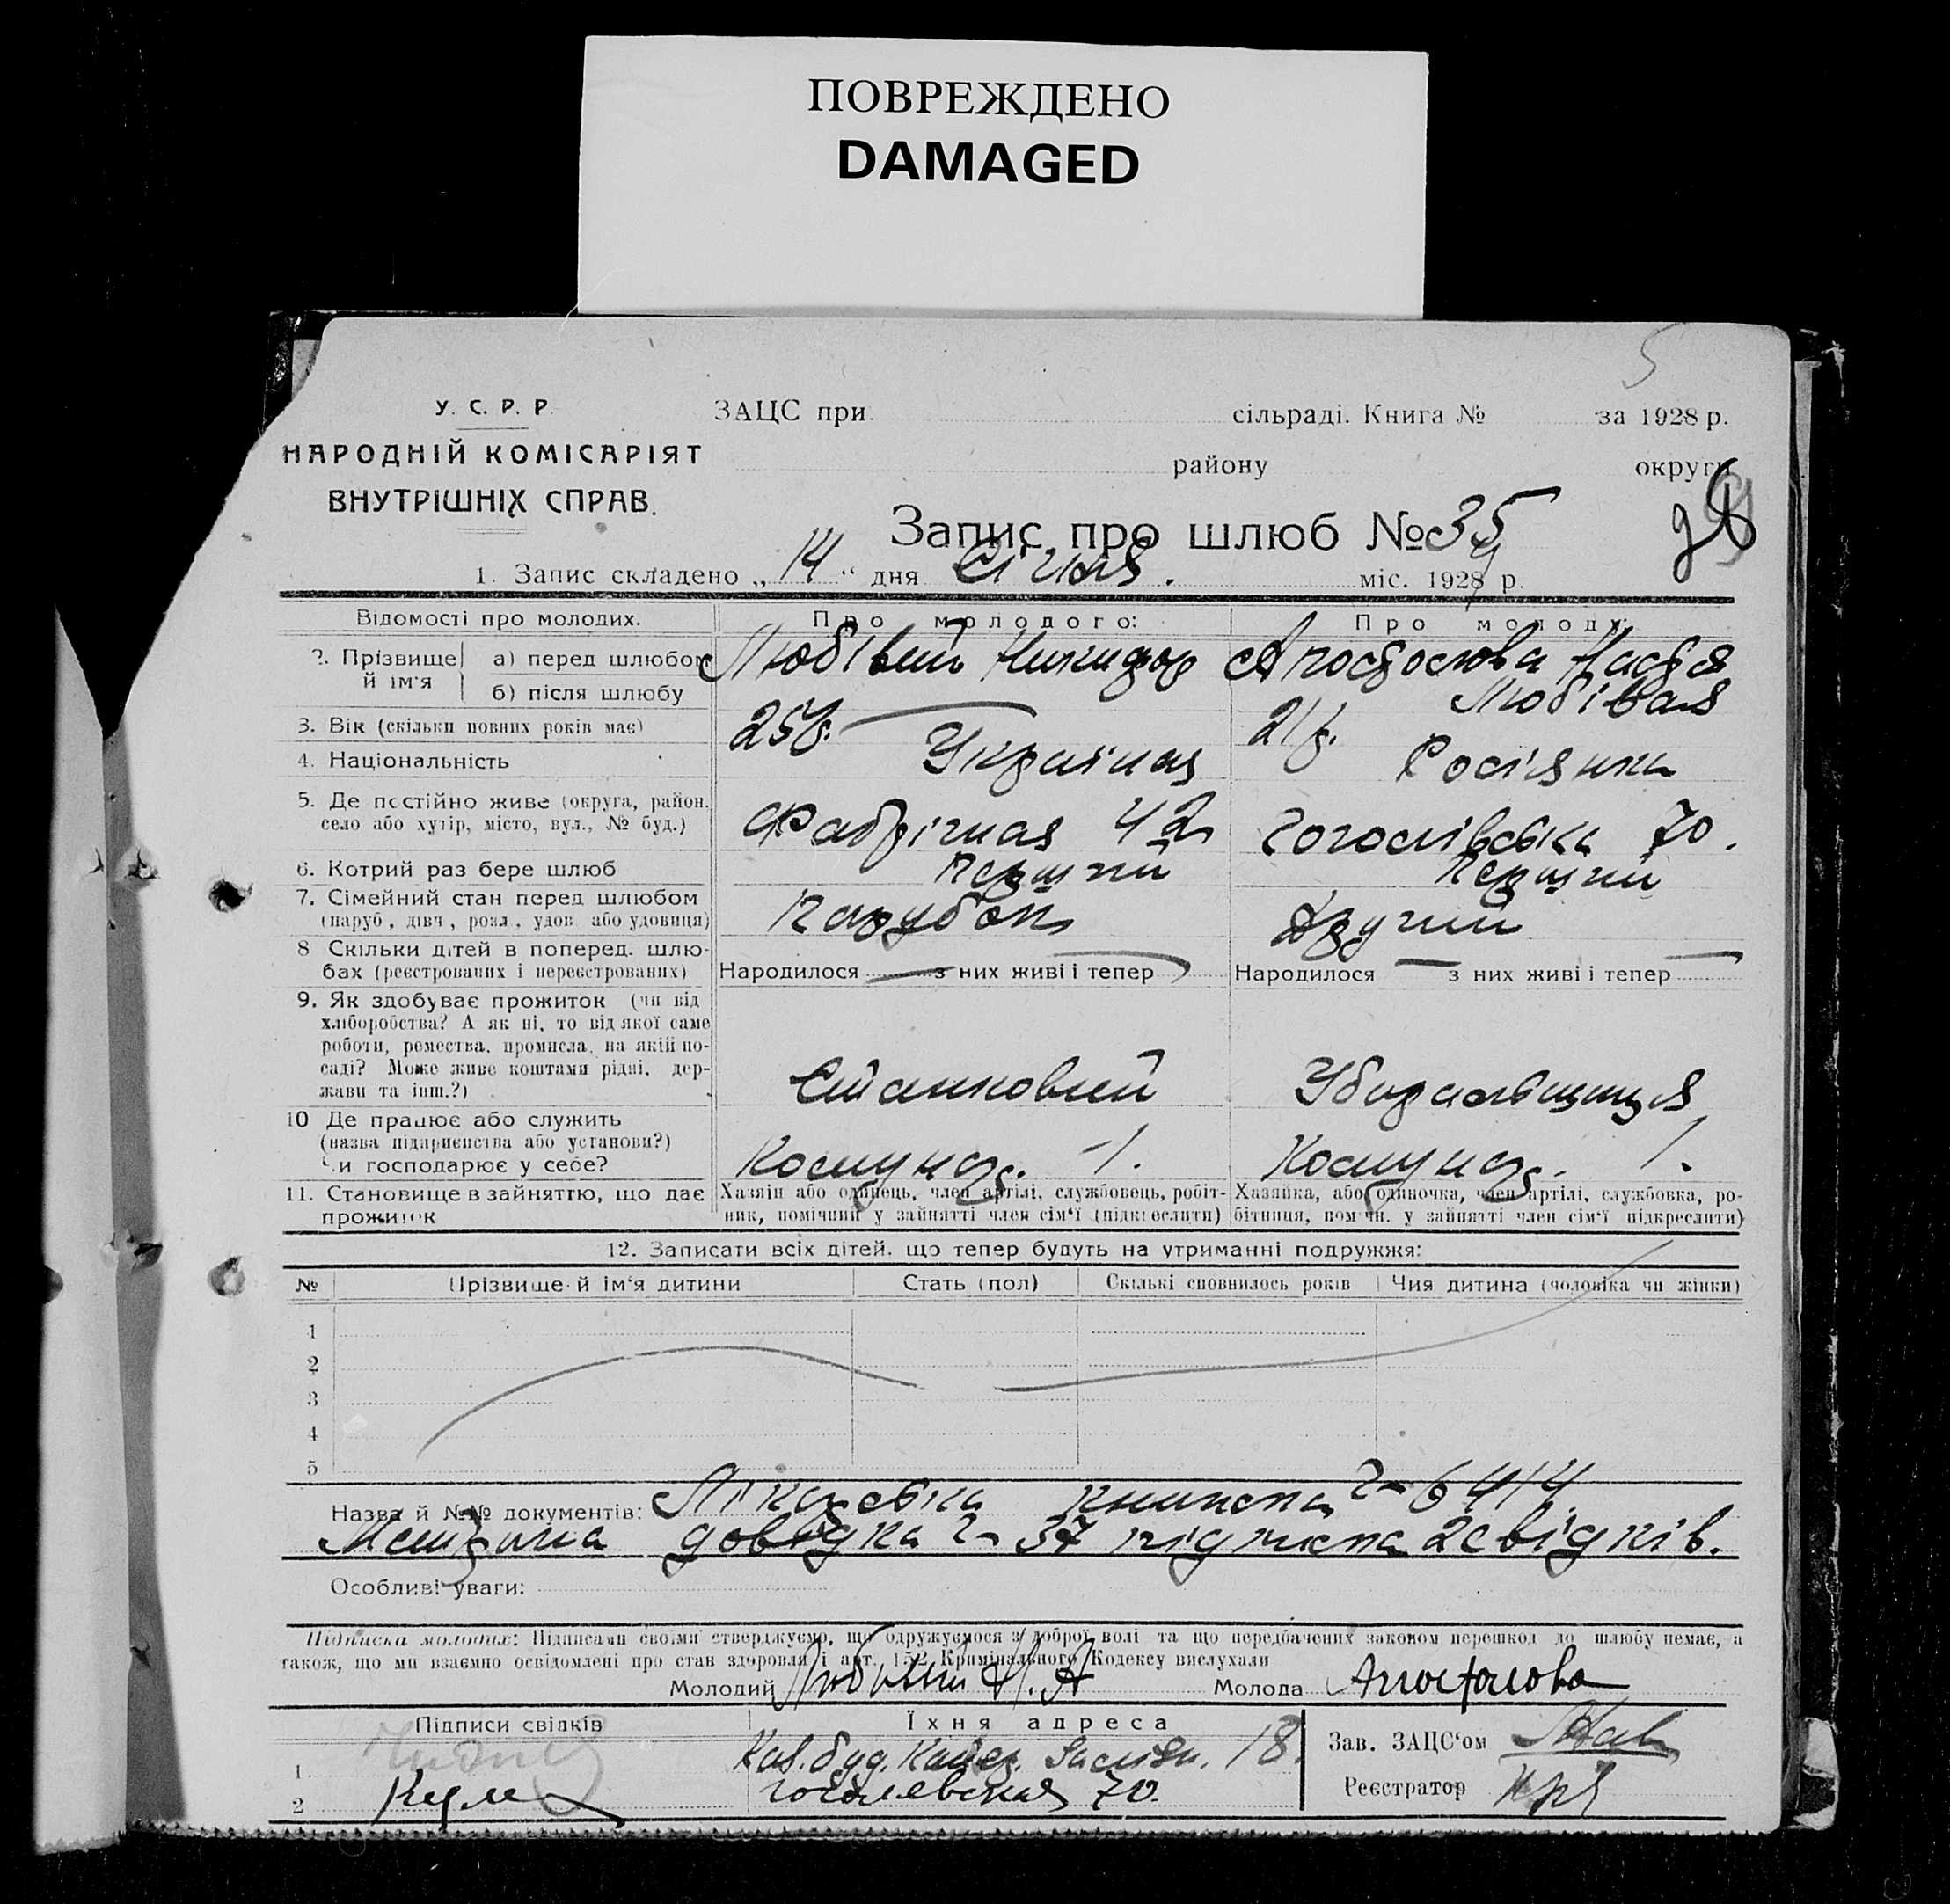 ПОВРЕЖДЕНО
DAMAGED
5
У. С. Р. Р.
НАРОДНІЙ КОМІСАРІЯТ
ВНУТРІШНІХ СПРАВ.
ЗАЦС при сільраді. Книга № за 1928 р.
району округи
Запис про шлюб № 35
1. Запис складено „14“ дня Січня міс. 1929 р.
Відомості про молодих. Про молодого: Про молоду:
2. Прізвище й ім'я а) перед шлюбом Любівий Никифор Апостолова Настя
б) після шлюбу Любівая
3. Вік (скільки повних років має) 25 21
4. Національність Українец Росіянка
5. Де постійно живе (округа, район, село або хутір, місто, вул., № буд.) Фабрічная 42 Гоголівська 70.
6. Котрий раз бере шлюб Перший Перший
7. Сімейний стан перед шлюбом (паруб., дівч., розл., удов. або удовиця) Парубок
8 Скільки дітей в поперед. шлюбах (реєстрованих і нереєстрованих) Народилося з них живі і тепер Народилося з них живі і тепер
9. Як здобуває прожиток (чи від хліборобства? А як ні, то від якої саме роботи, ремества, промисла, на якій посаді? Може живе коштами рідні, держави та інш.?) Станковий Убиральщиця
10 Де працює або служить (назва підприємства або установи?) Чи господарює у себе? 1. 1.
11. Становище в зайняттю, що дає прожиток Хазяїн або одинець, член артілі, службовець, робітник, помічний у зайнятті член сім'ї (підкреслити) Хазяйка, або одиночка, член артілі, службовка, робітниця, помічн. у зайнятті член сім'ї підкреслити)
12. Записати всіх дітей, що тепер будуть на утриманні подружжя:
№ Прізвище й ім'я дитини Стать (пол) Скількі сповнилось років Чия дитина (чоловіка чи жінки)
1
2
3
4
5
Назва й №№ документів: Лікарська книжка 6414
довідка 37 підписка 2 свідків.
Особливі уваги:
Підписка молодих: Підписами своїми стверджуємо, що одружуємося з доброї волі та що передбачених законом перешкод до шлюбу немає, а
також, що ми взаємно освідомлені про стан здоровля і арт. 152 Кримінального Кодексу вислухали
Молодий Молода Апостолова
Підписи свідків Їхня адреса Зав. ЗАЦС'ом
1 18.
2 Гоголевская 70. Реєстратор